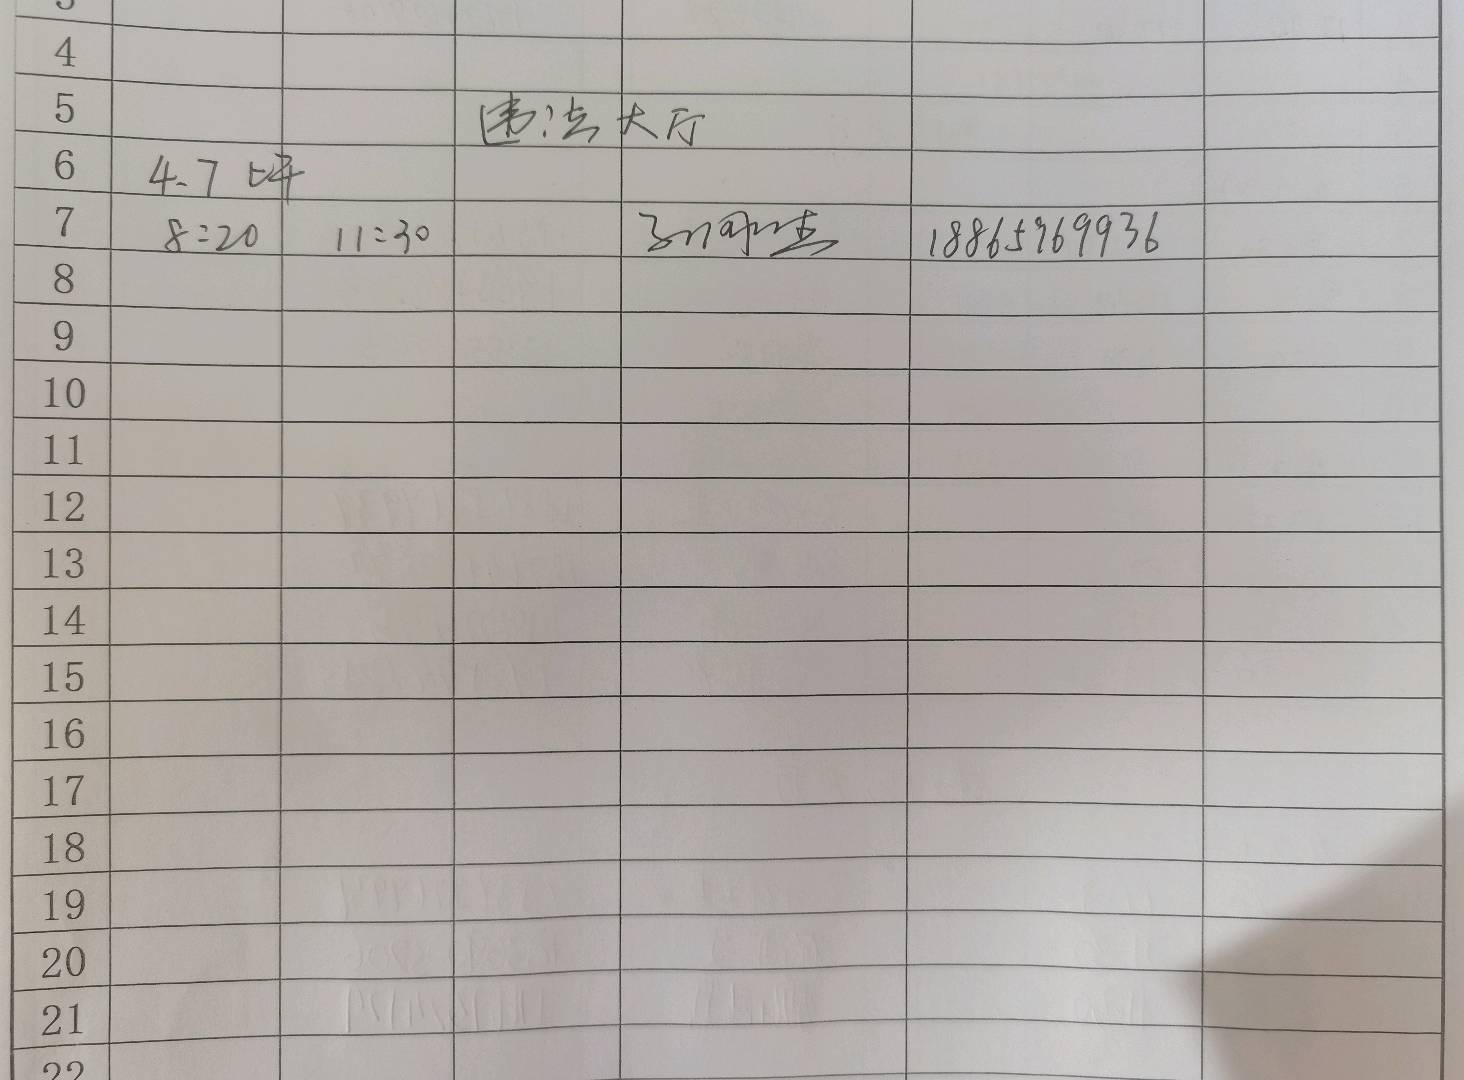 4
5 违法大厅
6 4.7
7 8:20 11:30 18865969936
8
9
10
11
12
13
14
15
16
17
18
19
20
21
22